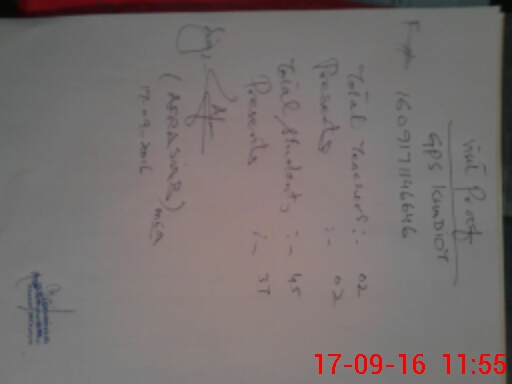 Visit Proof
GPS KUMDIOT
1609171146646
Total Teachers :- 02
Presents :- 02
Total Students :- 45
Presents :- 37
Sig.
MEA
17.09.2016
17-09-16 11:55